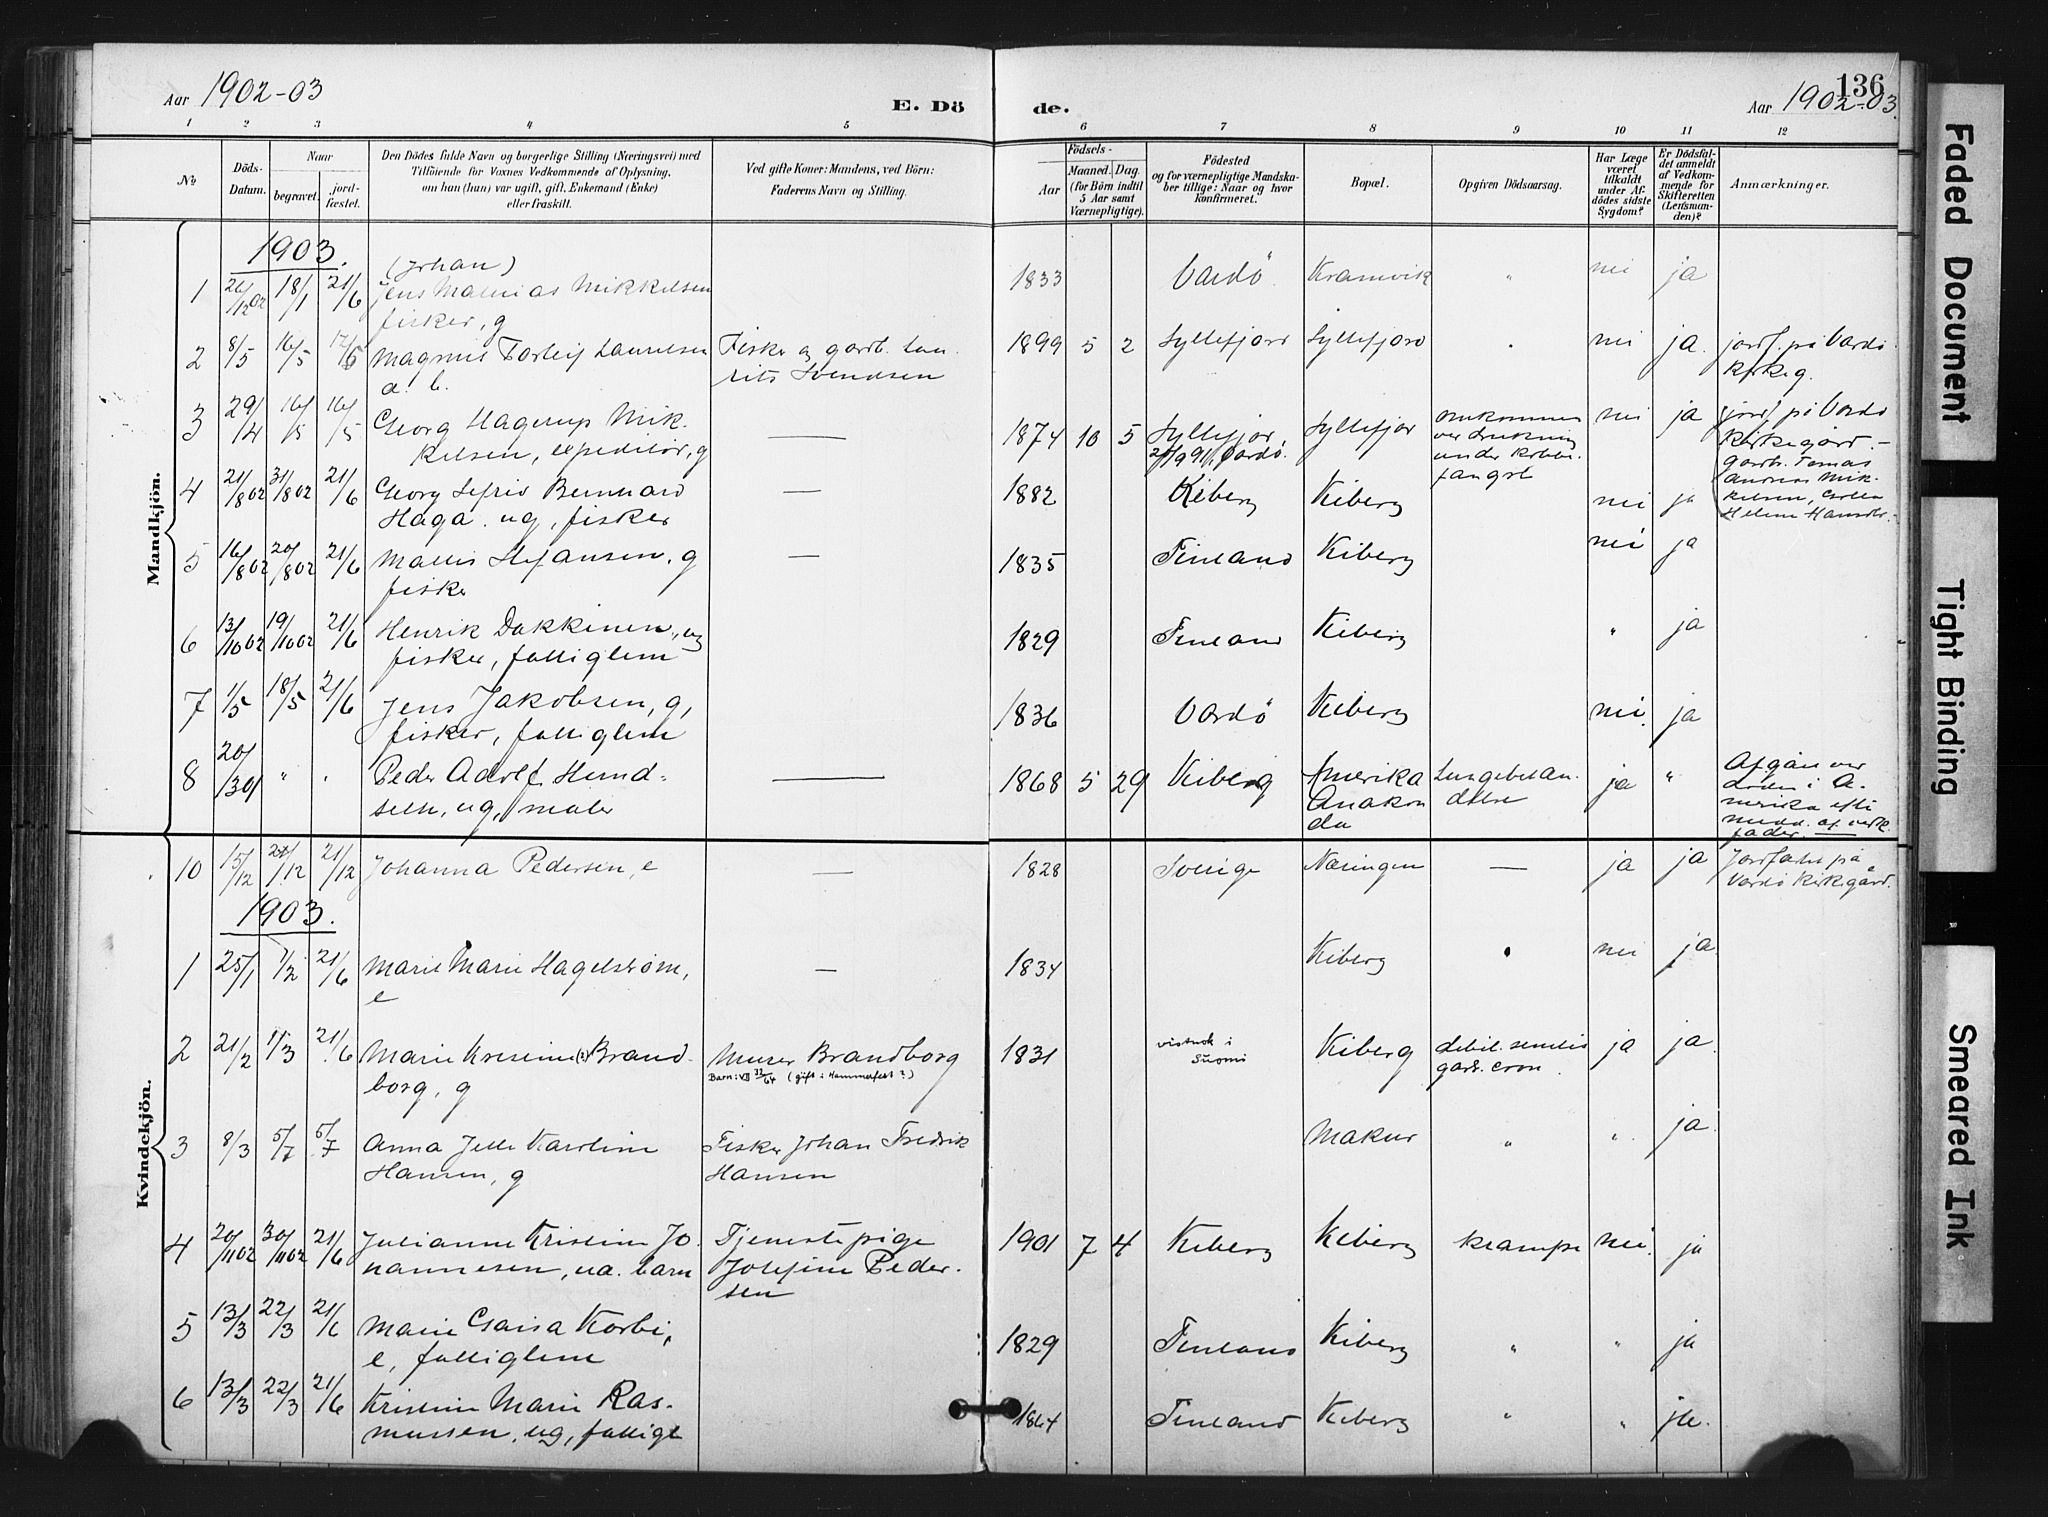 Aar 1902-03
E. Dö
de.
136
Aar 1902-03.
1 2 3 4 5 6 7 8 9 10 11 12
No
Döds-
Datum.
Naar
begravet.
jord-
fæstet.
Den Dödes fulde Navn og borgerlige Stilling (Næringsvei) med
Tilföiende for Voxnes Vedkommende af Oplysning,
om han (hun) var ugift, gift, Enkemand (Enke)
eller fraskilt.
Ved gifte Koner: Mandens, ved Börn:
Faderens Navn og Stilling.
Födsels-
Aar
Maaned. Dag.
(for Börn indtil
5 Aar samt
Værnepligtige).
Födested
og for værnepligtige Mandska-
ber tillige: Naar og hvor
konfirmeret.
Bopæl.
Opgiven Dödsaarsag.
Har Læge
været
tilkaldt
under Af-
dödes sidste
Sygdom?
Er Dödsfal-
det anmeldt
af Vedkom-
mende for
Skifteretten
(Lensman-
den)?
Anmærkninger.
Mandkjön.
1903.
(Johan)
1 18/1 21/6 Jens Mathias Mikkelsen 1833 Vardö Kramvik " nei ja
fisker, g
2 8/5 16/5 17/5 Magnus Torleif Lauritsen Fisker og gaardb. Lau- 1899 5 2 Syltefjord Syltefjord " nei ja. jordf. på Vardö
a. b. rits Svendsen kirkeg.
3 29/4 16/5 16/5 Georg Hagerup Mik- — 1874 10 5 Syltefjor, Syltefjor omkommen nei ja jordf på Vardö
kelsen, expeditör, g Vardö. ved drukning kirkegård. -
under kobbe- gardb. Tomas
fangst Andreas Mik-
4 21/8 02 31/8 02 21/6 Georg Sefrid Bernhard — 1882 Kiberg Kiberg nei ja kelsen,
Haga, ug, fisker Helene Hansdtr. -
5 16/8 02 20/8 02 21/6 Mattis Stefansen, g — 1835 Finland Kiberg nei ja
fisker
6 13/10 02 19/10 02 21/6 Henrik Dakkinen, ug 1829 Finland Kiberg " ja
fisker, fattiglem
7 1/5 18/5 21/6 Jens Jakobsen, g, 1836 Vardö Kiberg nei. ja
fisker, fattiglem
8 20/1 301 " " Peder Adolf Hemd- — 1868 5 29 Kiberg Amerika Lungebetæn- ja " Afgån ved
seln, ug, maler Anakon delse döden i A-
da merika efter
medd. af
fader.
Kvindekjön.
10 15/12 21/12 21/12 Johanna Pedersen, e — 1828 Sverige Næringen — ja ja Jordfæstet på
Vardö kirkegård.
1903.
1 25/1 1/2 21/6 Marie Marie Hagelström, — 1834 Kiberg " nei ja.
e
2 21/2 1/3 21/6 Marie Kristine (?) Brand- Murer Brandborg 1831 vistnok i Kiberg debil. senilis ja ja.
borg, g Barn: VII 32/64 (gift i Hammerfest?) Suomi
3 8/3 5/7 5/7 Anna Jelle Karoline Fisker Johan Fredrik Makur " " ja.
Hansen, g Hansen
4 20/11 02 30/11 02 21/6 Julianne Kristine Jo- Tjenestepige 1901 7 4 Kiberg Kiberg krampe nei. ja
hannesen, ua. barn Josefine Peder-
sen
5 13/3 22/3 21/6 Marie Caisa Korbi, 1829 Finland Kiberg " " ja
e, fattiglem
6 13/3 22/3 21/6 Kristine Marie Ras- 1864 Finland Kiberg " " ja.
mussen, ug, fattigl
Faded Document
Tight Binding
Smeared Ink